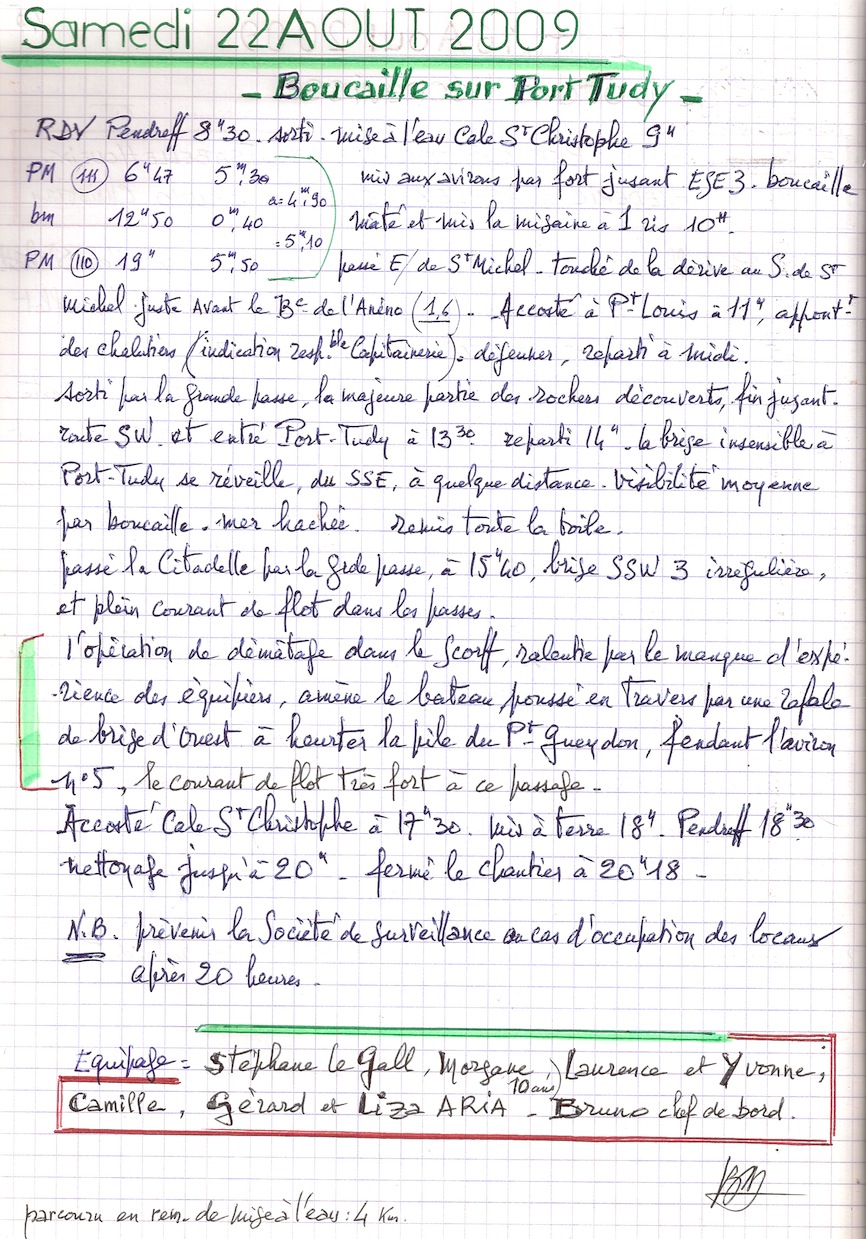 Samedi 22 AOUT 2009
- Boucaille sur Port Tudy -
RDV Pendreff 8h30. sorti. mise à l'eau Cale St Christophe 9h
PM (111) 6h47 5m,30 mis aux avirons par fort jusant ESE 3. boucaille
a = 4m,90
bm 12h50 0m,40 mâté et mis la misaine à 1 ris 10H.
= 5m,10
PM (110) 19h 5m,50 passé E/ de St Michel - touché de la dérive au S. de St
Michel juste Avant la Be de l'Aréno (1,6) - Accosté à Pt Louis à 11h, appont-t
des chalutiers (indication respble Capitainerie). déjeuner, reparti à midi.
sorti par la grande passe, la majeure partie des rochers découverts, fin jusant.
route SW. et entré Port-Tudy à 13 30 reparti 14h - la brise insensible à
Port-Tudy se réveille, du SSE, à quelque distance. Visibilité moyenne
par boucaille. mer hachée. remis toute la toile.
passé la Citadelle par la gde passe, à 15h40, brise SSW 3 irrégulière,
et plein courant de flot dans les passes.
l'opération de démâtage dans le Scorff, ralentie par le manque d'expé-
-rience des équipiers, amène le bateau, poussé en Travers par une rafale
de brise d'Ouest à heurter la pile du Pt Gueydon, fendant l'aviron
n°5, le courant de flot très fort à ce passage -
Accosté Cale St Christophe à 17h30. mis à terre 18h. Pendreff 18h30
nettoyage jusqu'à 20h - fermé le chantier à 20h18 -
N.B. prévenir la Société de surveillance en cas d'occupation des locaux
après 20 heures.
Equipage = Stéphane le Gall, Morgane, Laurence et Yvonne,
10 ans)
Camille, Gérard et Liza ARIA - Bruno chef de bord.
BM
parcouru en rem. de mise à l'eau : 4 Km.